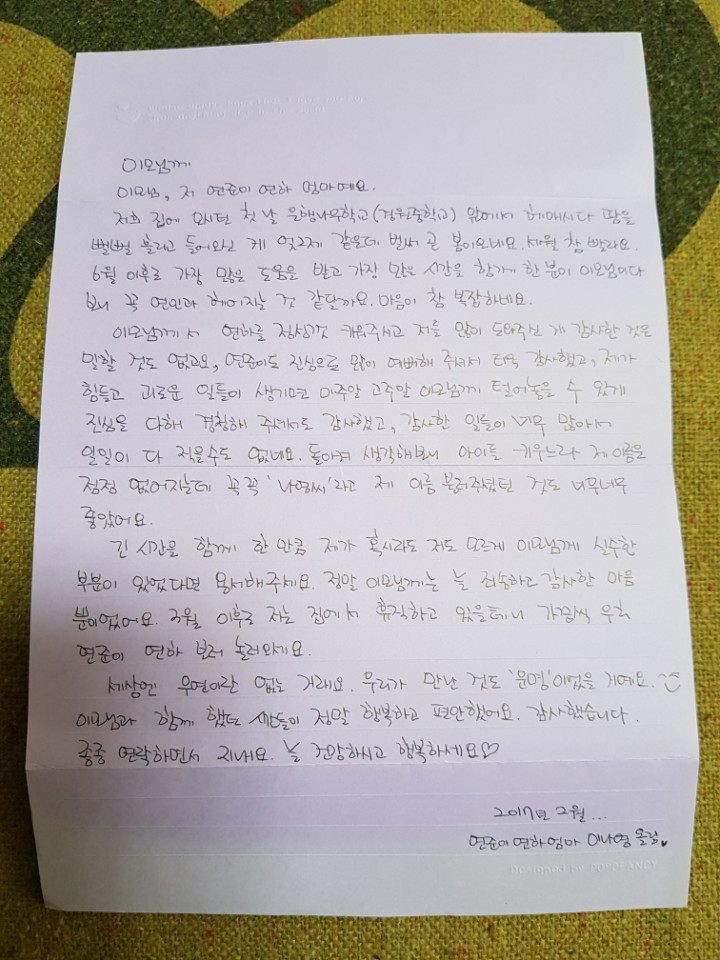 이모님께
이모님, 저 연준이 연하 엄마예요.
저희 집에 오시던 첫 날 은행나무학교(경원중학교) 앞에서 헤매시다 땀을
뻘뻘 흘리고 들어오신 게 엊그제 같은데 벌써 곧 봄이 오네요. 세월 참 빨라요.
6월 이후로 가장 많은 도움을 받고 가장 많은 시간을 함께 한 분이 이모님이다
보니 꼭 연인과 헤어지는 것 같달까요. 마음이 참 복잡하네요.
이모님께서 연하를 정성껏 키워주시고 저를 많이 도와주신 게 감사한 것은
말할 것도 없고요, 연준이도 진심으로 많이 예뻐해 주셔서 더욱 감사했고, 제가
힘들고 괴로운 일들이 생기면 미주알 고주알 이모님께 털어놓을 수 있게
진심을 다해 경청해 주셔서도 감사했고, 감사한 일들이 너무 많아서
일일이 다 적을수도 없네요. 돌이켜 생각해보니 아이들 키우느라 제 이름은
점점 없어지는데 꼭꼭 '나영씨'라고 제 이름 불러주셨던 것도 너무너무
좋았어요.
긴 시간을 함께 한 만큼 제가 혹시라도 저도 모르게 이모님께 실수한
부분이 있었다면 용서해주세요. 정말 이모님께는 늘 죄송하고 감사한 마음
뿐이었어요. 3월 이후로 저는 집에서 휴직하고 있을테니 가끔씩 우리
연준이 연하 보러 놀러오세요.
세상엔 우연이란 없는 거래요. 우리가 만난 것도 '운명'이었을 거예요.
이모님과 함께 했던 시간들이 정말 행복하고 편안했어요. 감사했습니다.
종종 연락하면서 지내요. 늘 건강하시고 행복하세요♡
2017년 2월...
연준이 연하엄마 이나영 올림♥
Designed by POPOPANCY